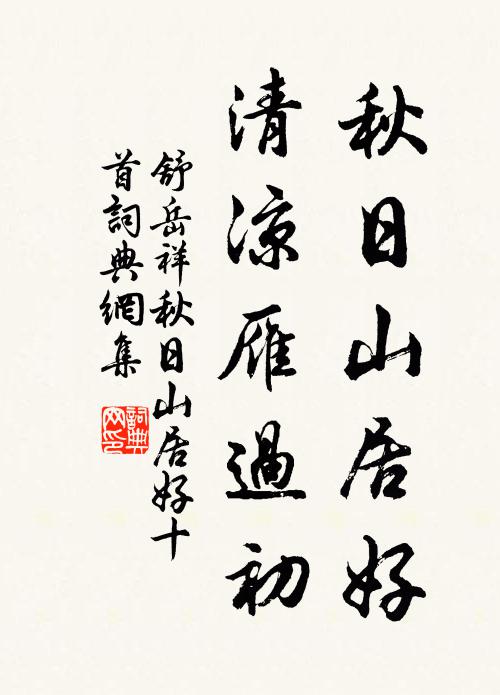 秋日山居好
清凉雁過初
舒岳祥秋日山居好十
首詞典網集
詞典
网印